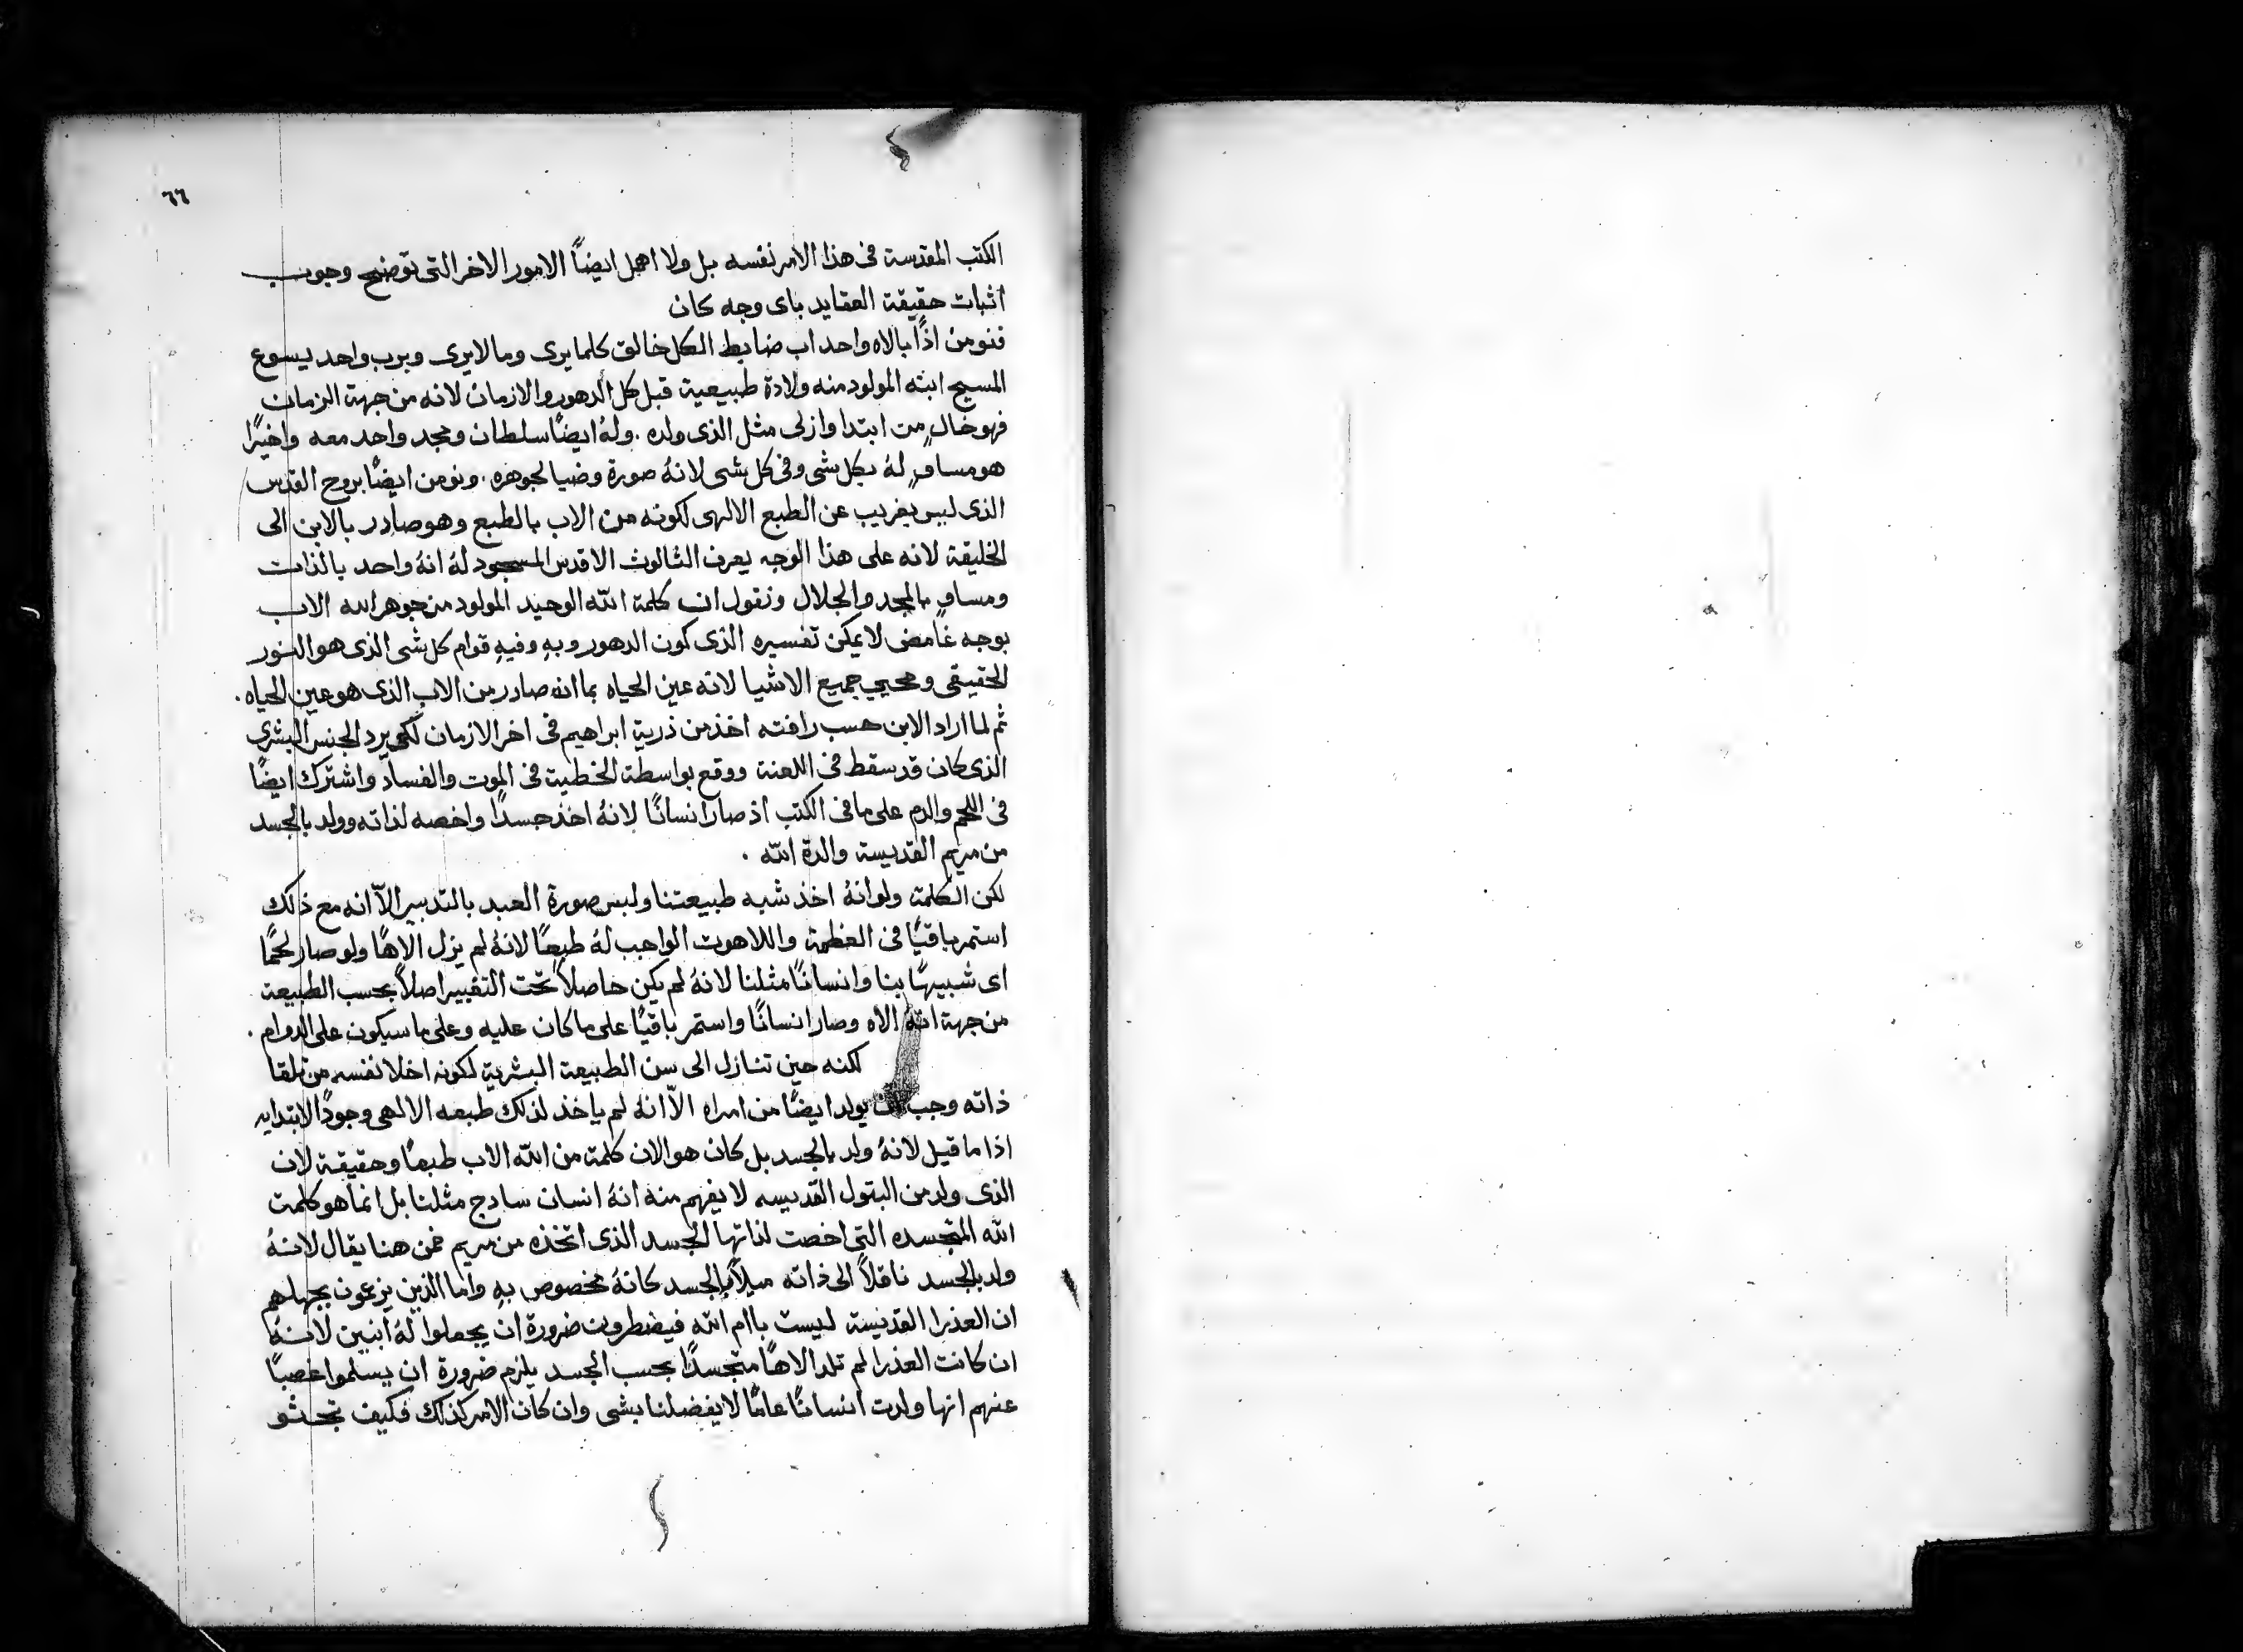 ٦٦
الكتب المقدسة فى هذا الامر نفسه بل ولا اهمل ايضاً الامور الاخر التى توضح وجوب
اثبات حقيقة العقايد باى وجه كان
فنومن اذًا بالاه واحد اب ضابط الكل خالق كلما يرى وما لا يرى وبرب واحد يسوع
المسيح ابنه المولود منه ولادة طبيعية قبل كل الدهور والازمان لانه من جهة الزمان
فهو خالٍ من ابتدا وازلى مثل الذى ولده . ولهُ ايضًا سلطان ومجد واحد معه واخيرًا
هو مساوٍ لهُ بكل شى وفى كل شى لانهُ صورة وضيا لجوهره . ونومن ايضًا بروح القدس
الذى ليس بغريب عن الطبع الالهى لكونه من الاب بالطبع وهو صادر بالابن الى
الخليقة لانه على هذا الوجه يعرف الثالوث الاقدس المسجود لهُ انهُ واحد بالذات
ومساوٍ بالمجد والجلال ونقول ان كلمة الله الوحيد المولود من جوهر الله الاب
بوجه غامض لا يمكن تفسيره الذى كون الدهور وبهِ وفيهِ قوام كل شى الذى هو النور
الحقيقى ومحيي جميع الاشيا لانه عين الحياه بما انه صادر من الاب الذى هو عين الحياه .
ثم لما اراد الابن حسب رافته اخذ من ذرية ابراهيم فى اخر الازمان لكى يرد الجنس البشرى
الذى كان قد سقط فى اللعنة ووقع بواسطة الخطية فى الموت والفساد واشترك ايضًا
فى اللحم والدم على ما فى الكتب اذ صار انسانًا لانهُ اخذ جسدًا واخصه لذاته وولد بالجسد
من مريم القديسة والدة الله .
لكن الكلمة ولو انهُ اخذ شبه طبيعتنا ولبس صورة العبد بالتدبير الاّ انه مع ذلك
استمر باقيًا فى العظمة واللاهوت الواجب لهُ طبعًا لانهُ لم يزل الاهًا ولو صار لحمًا
اى شبيهًا بنا وانسانًا مثلنا لانهُ لم يكن حاصلاً تحت التغيير اصلاً بحسب الطبيعة
من جهة انهُ الاه وصار انسانًا واستمر باقيًا على ما كان عليه وعلى ما سيكون على الدوام .
لكنه حين تنازل الى سن الطبيعة البشرية لكونه اخلا نفسه من تلقا
ذاته وجب ان يولد ايضًا من امراه الاّ انهُ لم ياخذ لذلك طبعه الالهى وجودًا لابتدايه
اذا ما قيل لانهُ ولد بالجسد بل كان هو الان كلمة من الله الاب طبعًا وحقيقة لان
الذى ولد من البتول القديسه لا يفهم منه انهُ انسان سادج مثلنا بل انما هو كلمة
الله المتجسده التى اخصت لذاتها الجسد الذى اتخذه من مريم فمن هنا يقال لانهُ
ولد بالجسد ناقلاً الى ذاته ميلاد الجسد كانهُ مخصوص بهِ واما الذين يزعمون بجهلهم
ان العذرا القديسة ليست باام الله فيضطرون ضرورة ان يجعلوا لهُ ابنين لانهُ
ان كانت العذرا لم تلد الاهًا متجسدًا بحسب الجسد يلزم ضرورة ان يسلموا غصبًا
عنهم انها ولدت انسانًا عامًا لا يفضلنا بشى وان كان الامر كذلك فكيف تجثو